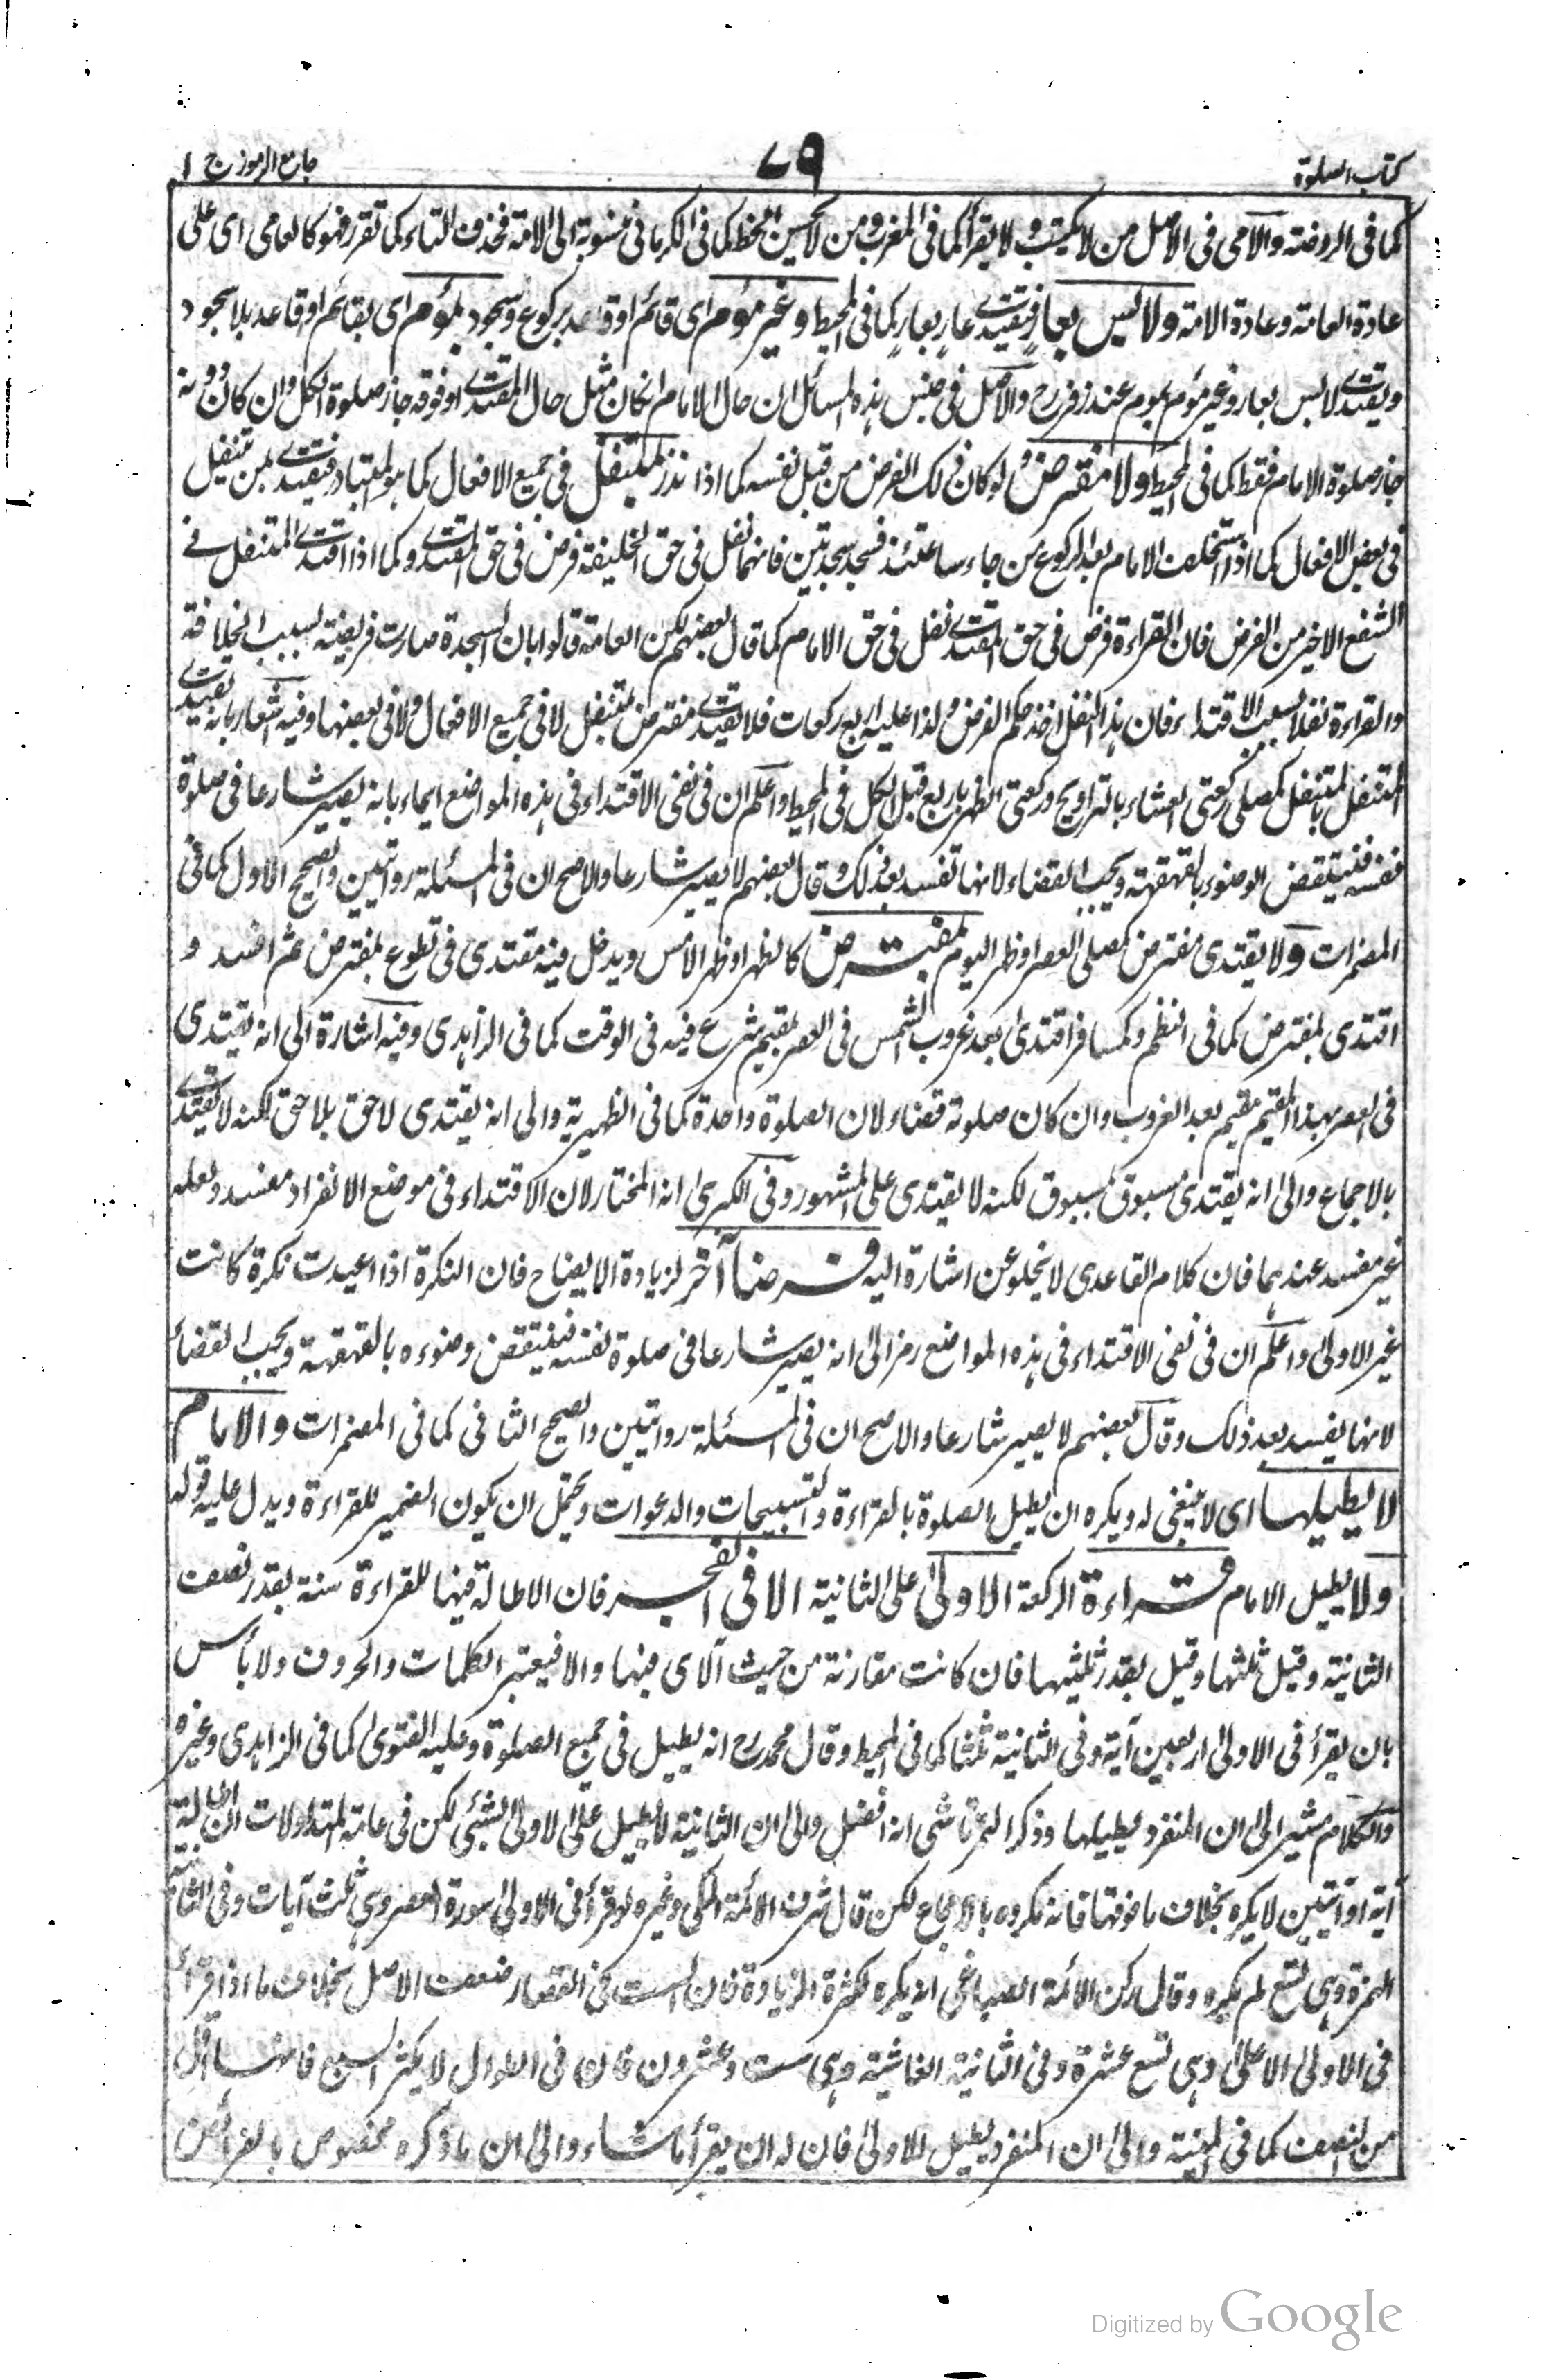 كتاب الصلوة
٧٩
جامع الرموز ج ١
كما فى الروضة والامى فى الاصل من لا يكتب ولا يقرأ كما فى المغرب ومن لا يحسن الخط كما فى الكرمانى منسوبة الى الامة فحذف التاء كما تقرر فهو كالعامى اى على
عادة العامة وعادة الامة ولا لابس بعار فيقتدى عار بعار كما فى المحيط وغير مؤم اى قائم او قاعد بركوع وسجود بمؤم اى بقائم او قاعد بلا سجود
ويقتدى لابس بعار وغير مؤم بموم عند زفر رح والاصل فى جنس هذه المسائل ان حال الامام انكان مثل حال المقتدى او فوقه جاز صلوة الكل وان كان دونه
جاز صلوة الامام فقط كما فى المحيط ولا مفترض ولو كان ذلك الفرض من قبل نفسه كما اذا نذر بمتنفل فى جميع الافعال كما هو المتبادر فيقتدى بمن تنفل
فى بعض الافعال كما اذا استخلف الامام بعد الركوع من جاء ساعتئذ فسجد سجدتين فانهما نفل فى حق الخليفة فرض فى حق المقتدى وكما اذا اقتدى المتنفل فى
الشفع الاخير من الفرض فان القراءة فرض فى حق المقتدى نفل فى حق الامام كما قال بعضهم لكن العامة قالوا بان السجدة صارت فريضة بسبب الخلافة
والقراءة نفلا بسبب الاقتداء فان هذا النفل اخذ حكم الفرض ولذا عليه اربع ركعات فلا يقتدى مفترض بمتنفل لا فى جميع الافعال ولا فى بعضها وفيه اشعار بانه يقتدى
المتنفل بالمتنفل كمصلى ركعتى العشاء بالتراويح وركعتى الظهر باربع قبل الكل فى المحيط واعلم ان فى نفى الاقتداء فى هذه المواضع ايماء بانه يصير شارعا فى صلوة
نفسه فينتقض الوضوء بالقهقهة ويجب القضاء لانها تفسد بعد ذلك وقال بعضهم لا يصير شارعا والاصح ان فى المسئلة روايتين والصحيح الاول كما فى
المضمرات ولا يقتدى مفترض كمصلى العصر او ظهر اليوم بمفترض كالظهر او ظهر الامس ويدخل فيه مقتدى فى تطوع بمفترض ثم افسد و
اقتدى بمفترض كما فى النظم وكمسافر اقتدى بعد غروب الشمس فى العصر بمقيم شرع فيه فى الوقت كما فى الزاهدى وفيه اشارة الى انه يقتدى
فى العصر بهذا المقيم مقيم بعد الغروب وان كان صلوته قضاء لان الصلوة واحدة كما فى الظهيرية والى انه يقتدى لاحق بلاحق لكنه لا يقتدى
بالاجماع والى انه يقتدى مسبوق بمسبوق لكنه لا يقتدى على المشهور وفى الكبرى انه المختار لان الاقتداء فى موضع الانفراد مفسد ولعله
غير مفسد عندهما فان كلام القاعدى لا يخلو عن اشارة اليه فرضا آخر لزيادة الايضاح فان النكرة اذا اعيدت نكرة كانت
غير الاولى واعلم ان فى نفى الاقتداء فى هذه المواضع رمز الى انه يصير شارعا فى صلوة نفسه فينتقض وضوءه بالقهقهة ويجب القضاء
لانها يفسد بعد ذلك وقال بعضهم لا يصير شارعا والاصح ان فى المسئلة روايتين والصحيح الثانى كما فى المضمرات والامام
لا يطيلها اى لا ينبغى له ويكره ان يطيل الصلوة بالقراءة والتسبيحات والدعوات ويحتمل ان يكون الضمير للقراءة ويدل عليه قوله
ولا يطيل الامام قراءة الركعة الاولى على الثانية الا فى الفجر فان الاطالة فيها للقراءة سنة بقدر نصف
الثانية وقيل ثلثها وقيل بقدر ثلثيها فان كانت مقارنة من حيث الآى فبها والا فيعتبر الكلمات والحروف ولا بأس
بان يقرأ فى الاولى اربعين آية وفى الثانية ثلثا كما فى المحيط وقال محمد رح انه يطيل فى جميع الصلوة وعليه الفتوى كما فى الزاهدى وغيره
والكلام مشير الى ان المنفرد يطيلها وذكر التمرتاشى انه افضل والى ان الثانية لا يطيل على الاولى بشئ لكن فى عامة المتداولات ان اطالة
آية او آيتين لا يكره بخلاف ما فوقها فانه مكروه بالاجماع لكن قال شرف الائمة المكى وغيره لو قرأ فى الاولى سورة العصر وهى ثلث آيات وفى الثانية
الهمزة وهى تسع لم يكره وقال ركن الائمة الصباغى انه يكره لكثرة الزيادة فان الست فى القصار ضعف الاصل بخلاف ما اذا قرأ
فى الاولى الاعلى وهى تسع عشرة وفى الثانية الغاشية وهى ست وعشرون فان فى الطوال لا يكثر السبع فانها اقل
من النصف كما فى المنية والى ان المنفرد يطيل الاولى فان له ان يقرأ ما شاء والى ان ما ذكره مخصوص بالفرائض
Digitized by Google